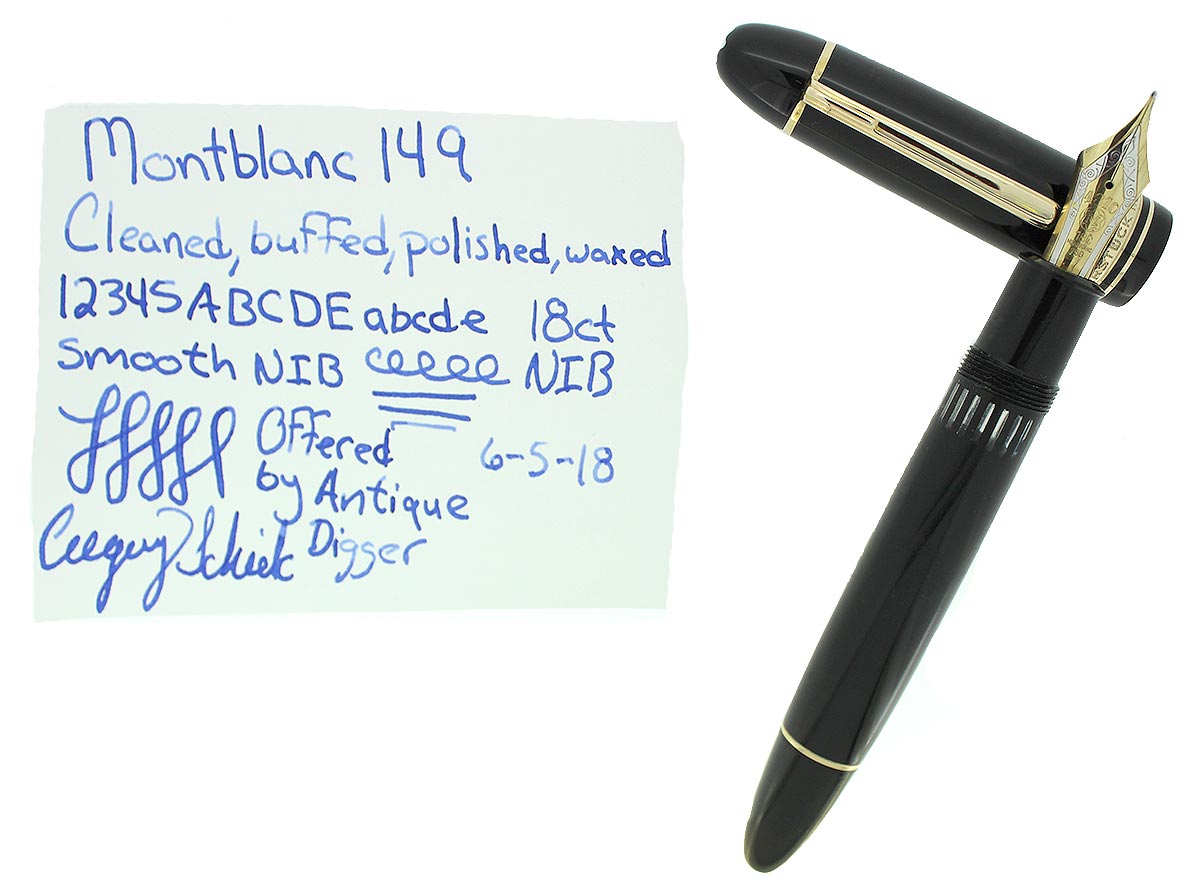 Montblanc 149
Cleaned, buffed, polished, waxed
12345 ABCDE abcde 18ct
smooth NIB NIB
Offered 6-5-18
by Antique
Digger